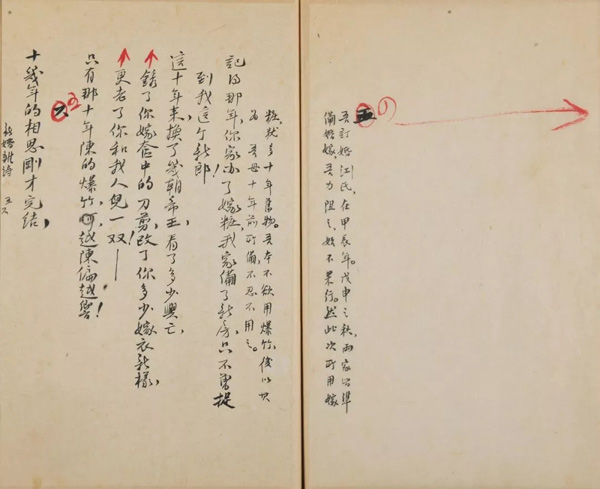 五
吾訂婚江氏,在甲辰年。戊申之秋,兩家皆準
備婚嫁,吾力阻之,始不果行。然此次所用嫁
粧,猶多十年舊物。吾本不欲用爆竹,後以其
為吾母十年前所備,不忍不用之。
記得那年,你家办了嫁粧,我家備了新房,只不曾捉
到我這个新郎!
這十年來,換了幾朝帝王,看了多少興亡,
銹了你嫁奩中的刀剪,改了你多少嫁衣新樣,
更老了你和我人兒一双!——
只有那十年陳的爆竹,越陳偏越響!
六
十幾年的相思剛才完結,
新婚雜詩 五 六